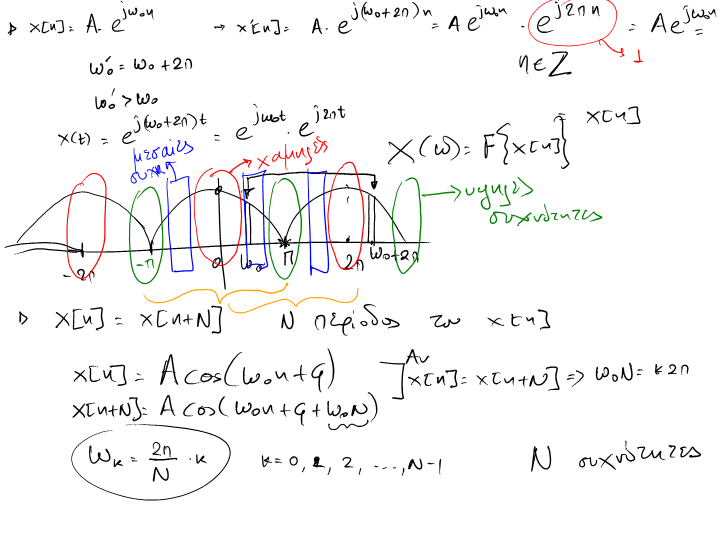 x[n] = A · e^{jω₀n} → x'[n] = A · e^{j(ω₀+2π)n} = A e^{jω₀n} · e^{j2πn} = A e^{jω₀n}
ω₀' = ω₀ + 2π
n ∈ ℤ
1
ω₀' > ω₀
x(t) = e^{j(ω₀+2π)t} = e^{jω₀t} · e^{j2πt}
X(ω) = F{x[n]}
= x[n]
μεσαίες συχν χαμηλές
υψηλές
συχνότητες
-2π -π 0 ω₀ π 2π ω₀+2π
x[n] = x[n+N] N περίοδος του x[n]
x[n] = A cos(ω₀n + φ)
Αν x[n] = x[n+N] ⇒ ω₀N = k 2π
x[n+N] = A cos(ω₀n + φ + ω₀N)
ω_k = 2π/N · k k = 0, 1, 2, ..., N-1 N συχνότητες